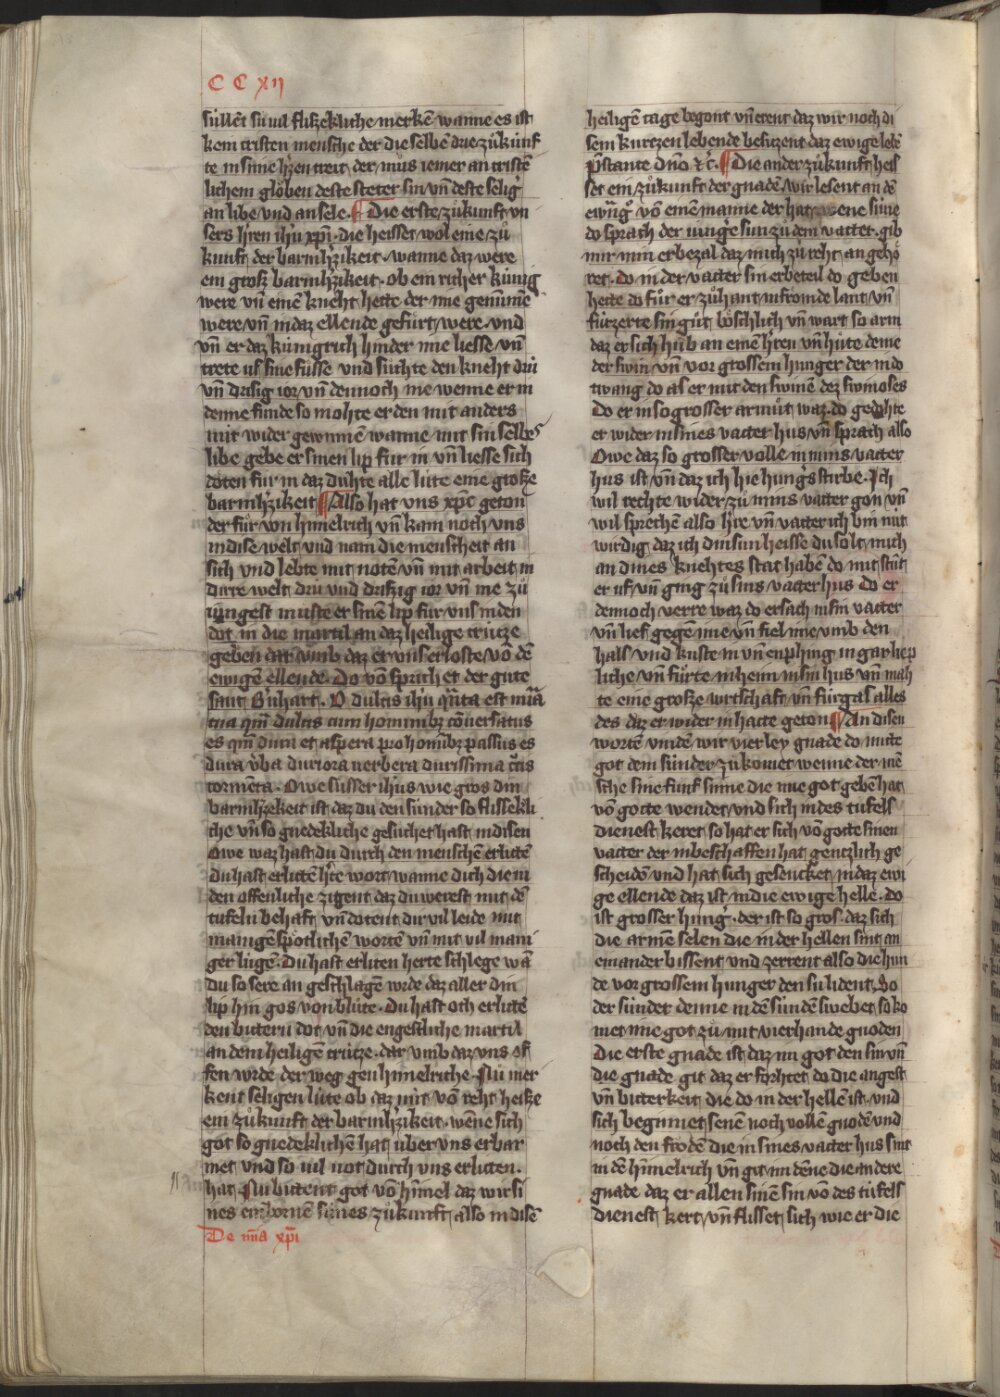 C C xij
súllēt sú vil flizekliche merkē wanne es ist
kein cristen mensche der die selben drie zůkúnf
te in sime h'zen treit der můs iemer an cristē
lichem glöben deste steter sin vn̄ deste selig'
an libe vnd an sele. ¶ Die erste zůkunft vn
sers h'ren ih'u xp̄i. die heisset wol eine zů
kunft der barmh'zikeit. wanne daz were
ein groß barmh'zikeit. ob ein richer kúnig
were vn̄ einē kneht hette der ime genūmē
were vn̄ in daz ellende gefúrt were. vnd
vn̄ er daz kúnigrich hinder ime liesse vn̄
trete uf sine fússe vnd sůchte den kneht drú
vn̄ drisig ior vn̄ dennoch me wenne er in
denne funde so mohte er den nit anders
mit wider gewinnē wanne mit sin selbes
libe gebe er sinen lip fúr in vn̄ liesse sich
doten fúr in daz duhte alle lúte eine große
barmh'zikeit ¶ Also hat vns xp̄c geton
der fůr von himelrich vn̄ kam noch vns
in dise welt vnd nam die menscheit an
sich vnd lebte mit notē vn̄ mit arbeit in
dirre welt drú vnd drißig ior vn̄ me zů
iungest muste er sinē lip fúr vns in den
dot in die martil an daz heilige crútze
geben dar vmb daz er vns erloste vō dē
ewigē ellende. Do vō sprichet der gůte
sant B'nhart. O dulcis ih'u q'nta est mi'a
tua qm̄ dulcis cum hominibz cōuersatus
es qm̄ dura et aspera pro hom̄ibz passus es
dura v'ba duriora verbera durissima c'cis
tormēta. Owe sússer ih'us wie gros din
barmh'zekeit ist daz du den súnder so flissekli
che vn̄ so gnedekliche gesůchet hast in disen
Owe waz hast du durch den menschē erlittē
Du hast erlittē h'te wort wanne dich die in
den offenliche zigent daz du werest mit dē
tufeln behaft vn̄ dotent dir vil leide mit
manigē spotlichē wortē vn̄ mit vil mani
ger lúgē. Du hast erliten herte schlege wā
du so sere an geschlagē wrde daz aller din
lip hin gos von blůte. Du hast och erlitē
den bittern dot vn̄ die engestliche martil
an dem heiligē crútze. dar vmb daz vns of
fen wrde der weg gen himelriche. Nů mer
kent seligen lúte ob daz nit vō reht heiße
ein zůkunft der barmh'zikeit. wēne sich
got so gnedeklichē hat úber vns erbar
met vnd so vil not durch vns erlitten.
hat Nu bittent got vō h'mel daz wir si
nes einbornē sunes zůkunft also in disē
De mīa xp̄i
heiligē tage begont vn̄ erent daz wir noch di
sem kurtzen lebende besitzent daz ewige lebē
p'stante d'no ⁊c̄. ¶ Die ander zůkunft heis
set ein zůkunft der gnadē wir lesent an dē
ewāg' vō einē manne der hat zwene súne
do sprach der iung'e sun zu dem vatter. gib
mir min erbezal daz mich zů reht an gehö
ret. do in der vatter sin erbeteil do geben
hette do fůr er zůhant in frömde lant vn̄
fúrzerte sin gůt böschlich vn̄ wart so arm
daz er sich hůb an einē h'ren vn̄ hůte deme
der swin vn̄ vor grossem hunger der in do
twang do as er mit den swinē dez swinoses
Do er in so grosser armůt waz. do gedohte
er wider in sines vatter hus vn̄ sprach also
Owe daz so grosser volle in mins vatter
hus ist vn̄ daz ich hie hung's stirbe. Ich
wil rechte wider zů mins vatter gon vn̄
wil sprechē also h're vn̄ vatter ich bin nút
wirdig daz ich din sun heisse du solt mich
an dines knehtes stat habē do mit stůt
er uf vn̄ ging zů sins vatter hus Do er
dennoch verre waz do ersach in sin vatter
vn̄ lief gegē ime vn̄ fiel ime vmb den
hals vnd kuste in vn̄ enphing in gar liep
liche vn̄ fůrte in heim in sin hus vn̄ mah
te eine große wirtschaft vn̄ fúrgas alles
des daz er wider in hatte geton ¶ An disen
wortē vindē wir vierley gnade do mitte
got dem súnder zů komet wenne der mē
sche sine fúnf sinne die ime got gebē hat
vō gotte wendet vnd sich in des tufels
dienest keret so hat er sich vō gotte sinen
vatter der in beschaffen hat gentzlich ge
scheidē vnd hat sich gesencket in daz ewi
ge ellende daz ist in die ewige helle. do
ist grosser hung'. der ist so gros daz sich
die armē selen die in der hellen sint an
einander bissent vnd zerrent also die hun
de vor grossem hunger den sú lident. So
der súnder denne in dē súndē swebet so ko
met ime got zů mit vierhande gnoden
Die erste gnade ist daz im got den sin vn̄
die gnade git daz er förhtet do die angest
vn̄ bitterkeit die do in der hellē ist vnd
sich beginnet senē noch vollē gnodē vnd
noch den frödē die in sines vatter hus sint
in dē h'melrich vn̄ git im dēne die andere
gnade daz er allen sinē sin vō des túfels
dienest kert vn̄ flisset sich wie er die